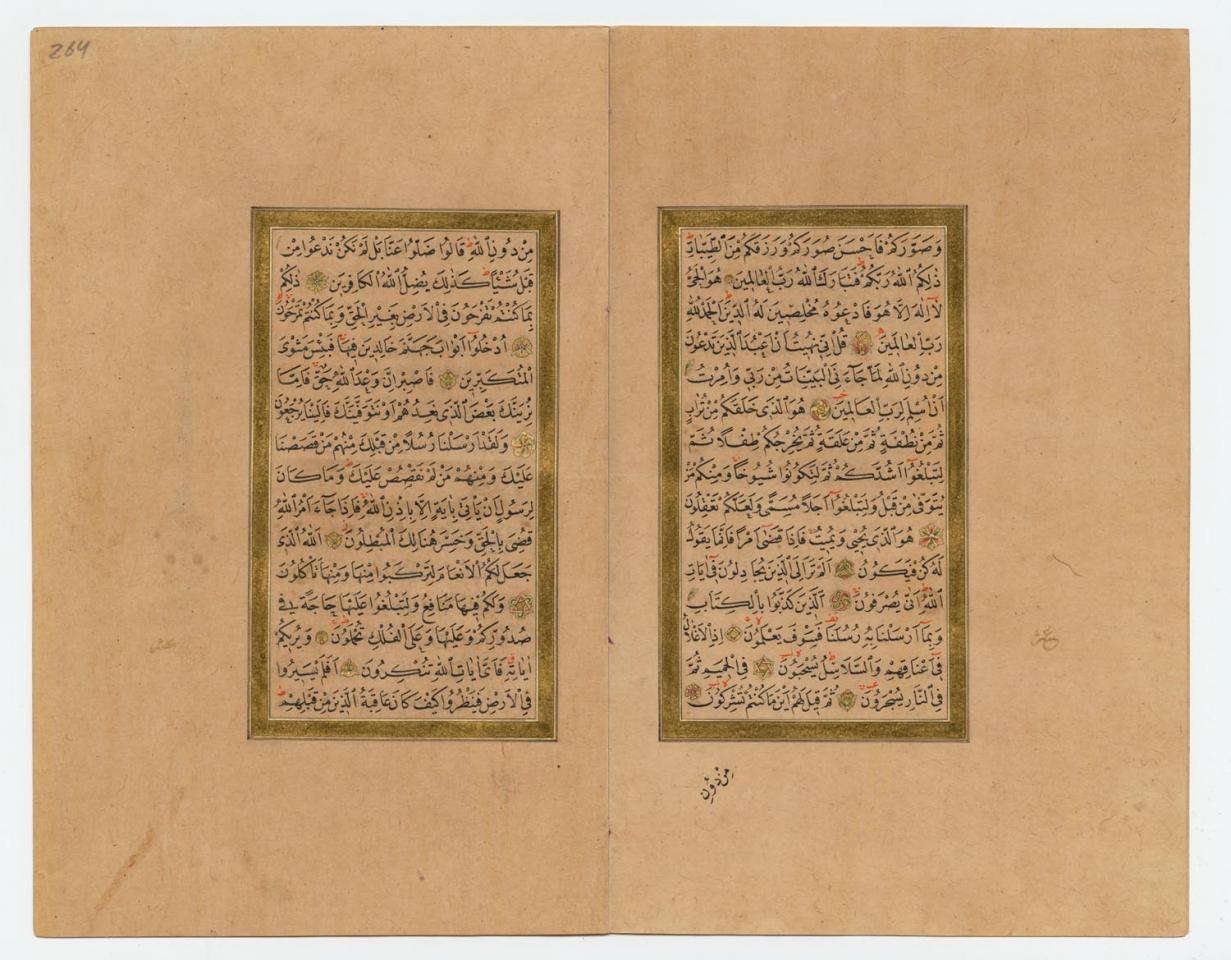 وَصَوَّرَكُمْ فَاَحْسَنَ صُوَرَكُمْ وَرَزَقَكُمْ مِنَ الطَّيِّبَاتِ
ذٰلِكُمُ اللّٰهُ رَبُّكُمْ فَتَبَارَكَ اللّٰهُ رَبُّ الْعَالَمِينَ هُوَ الْحَيُّ
لَٓا اِلٰهَ اِلَّا هُوَ فَادْعُوهُ مُخْلِصِينَ لَهُ الدِّينَ اَلْحَمْدُ لِلّٰهِ
رَبِّ الْعَالَمِينَ قُلْ اِنِّى نُهِيتُ اَنْ اَعْبُدَ الَّذِينَ تَدْعُونَ
مِنْ دُونِ اللّٰهِ لَمَّا جَٓاءَنِىَ الْبَيِّنَاتُ مِنْ رَبِّى وَاُمِرْتُ
اَنْ اُسْلِمَ لِرَبِّ الْعَالَمِينَ هُوَ الَّذِى خَلَقَكُمْ مِنْ تُرَابٍ
ثُمَّ مِنْ نُطْفَةٍ ثُمَّ مِنْ عَلَقَةٍ ثُمَّ يُخْرِجُكُمْ طِفْلًا ثُمَّ
لِتَبْلُغُٓوا اَشُدَّكُمْ ثُمَّ لِتَكُونُوا شُيُوخًا وَمِنْكُمْ مَنْ
يُتَوَفّٰى مِنْ قَبْلُ وَلِتَبْلُغُٓوا اَجَلًا مُسَمًّى وَلَعَلَّكُمْ تَعْقِلُونَ
هُوَ الَّذِى يُحْيِى وَيُمِيتُ فَاِذَا قَضٰٓى اَمْرًا فَاِنَّمَا يَقُولُ
لَهُ كُنْ فَيَكُونُ اَلَمْ تَرَ اِلَى الَّذِينَ يُجَادِلُونَ فِٓى اٰيَاتِ
اللّٰهِ اَنّٰى يُصْرَفُونَ اَلَّذِينَ كَذَّبُوا بِالْكِتَابِ
وَبِمَٓا اَرْسَلْنَا بِهِ رُسُلَنَا فَسَوْفَ يَعْلَمُونَ اِذِ الْاَغْلَالُ
فِٓى اَعْنَاقِهِمْ وَالسَّلَاسِلُ يُسْحَبُونَ فِى الْحَمِيمِ ثُمَّ
فِى النَّارِ يُسْجَرُونَ ثُمَّ قِيلَ لَهُمْ اَيْنَ مَا كُنْتُمْ تُشْرِكُونَ
مِنْ دُونِ
264
مِنْ دُونِ اللّٰهِ قَالُوا ضَلُّوا عَنَّا بَلْ لَمْ نَكُنْ نَدْعُوا مِنْ
قَبْلُ شَيْئًا كَذٰلِكَ يُضِلُّ اللّٰهُ الْكَافِرِينَ ذٰلِكُمْ
بِمَا كُنْتُمْ تَفْرَحُونَ فِى الْاَرْضِ بِغَيْرِ الْحَقِّ وَبِمَا كُنْتُمْ تَمْرَحُونَ
اُدْخُلُٓوا اَبْوَابَ جَهَنَّمَ خَالِدِينَ فِيهَا فَبِئْسَ مَثْوَى
الْمُتَكَبِّرِينَ فَاصْبِرْ اِنَّ وَعْدَ اللّٰهِ حَقٌّ فَاِمَّا
نُرِيَنَّكَ بَعْضَ الَّذِى نَعِدُهُمْ اَوْ نَتَوَفَّيَنَّكَ فَاِلَيْنَا يُرْجَعُونَ
وَلَقَدْ اَرْسَلْنَا رُسُلًا مِنْ قَبْلِكَ مِنْهُمْ مَنْ قَصَصْنَا
عَلَيْكَ وَمِنْهُمْ مَنْ لَمْ نَقْصُصْ عَلَيْكَ وَمَا كَانَ
لِرَسُولٍ اَنْ يَأْتِىَ بِاٰيَةٍ اِلَّا بِاِذْنِ اللّٰهِ فَاِذَا جَٓاءَ اَمْرُ اللّٰهِ
قُضِىَ بِالْحَقِّ وَخَسِرَ هُنَالِكَ الْمُبْطِلُونَ اَللّٰهُ الَّذِى
جَعَلَ لَكُمُ الْاَنْعَامَ لِتَرْكَبُوا مِنْهَا وَمِنْهَا تَأْكُلُونَ
وَلَكُمْ فِيهَا مَنَافِعُ وَلِتَبْلُغُوا عَلَيْهَا حَاجَةً فِى
صُدُورِكُمْ وَعَلَيْهَا وَعَلَى الْفُلْكِ تُحْمَلُونَ وَيُرِيكُمْ
اٰيَاتِهِ فَاَىَّ اٰيَاتِ اللّٰهِ تُنْكِرُونَ اَفَلَمْ يَسِيرُوا
فِى الْاَرْضِ فَيَنْظُرُوا كَيْفَ كَانَ عَاقِبَةُ الَّذِينَ مِنْ قَبْلِهِمْ